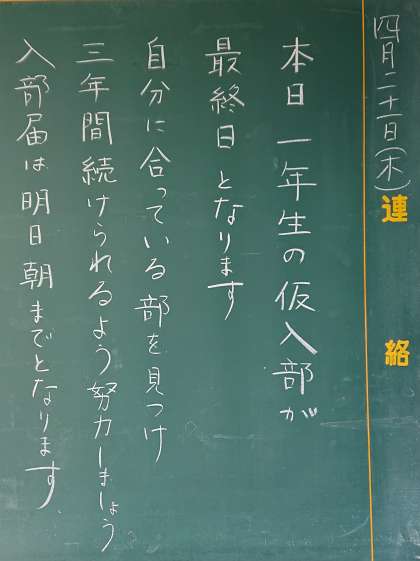 四月二十一日(木)
連絡
本日一年生の仮入部が
最終日となります
自分に合っている部を見つけ
三年間続けられるよう努力しましょう
入部届は明日朝までとなります